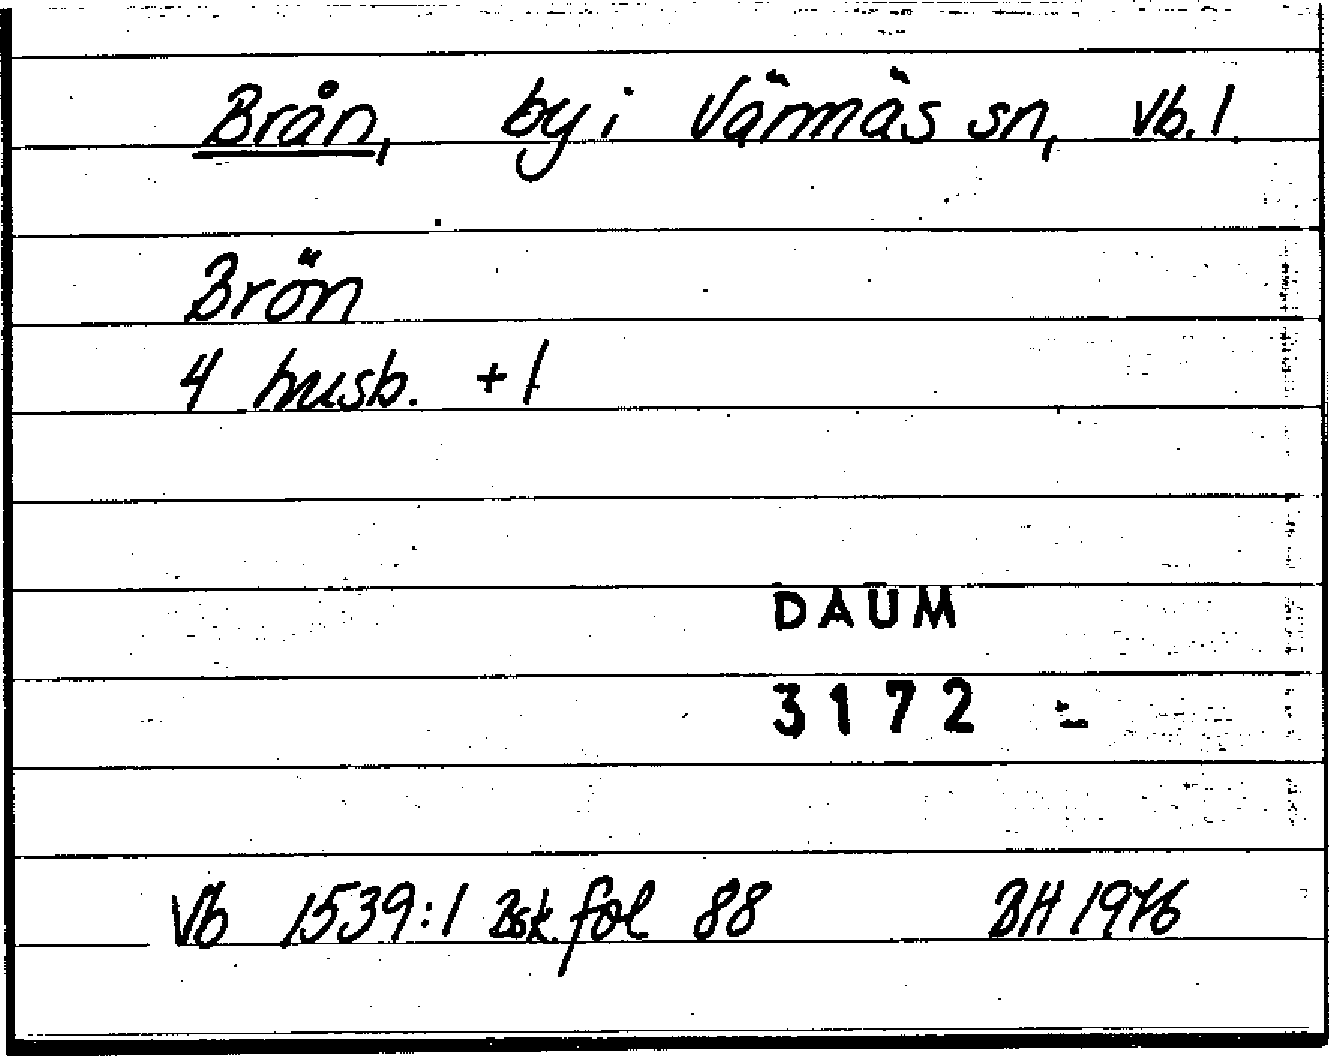 Brån, by i Vännäs sn, Vb. l.
Brön
4 husb. + 1
DAUM
3172
Vb 1539:1 Bsk. fol 88 BH 1976